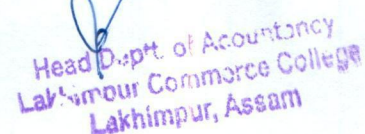 Head Deptt. of Acountancy
Lakhimpur Commerce College
Lakhimpur, Assam